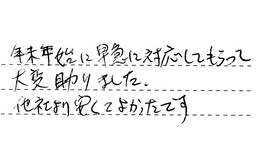 年末年始に早急に対応してもらって
大変助りました.
他社より安くてよかたです